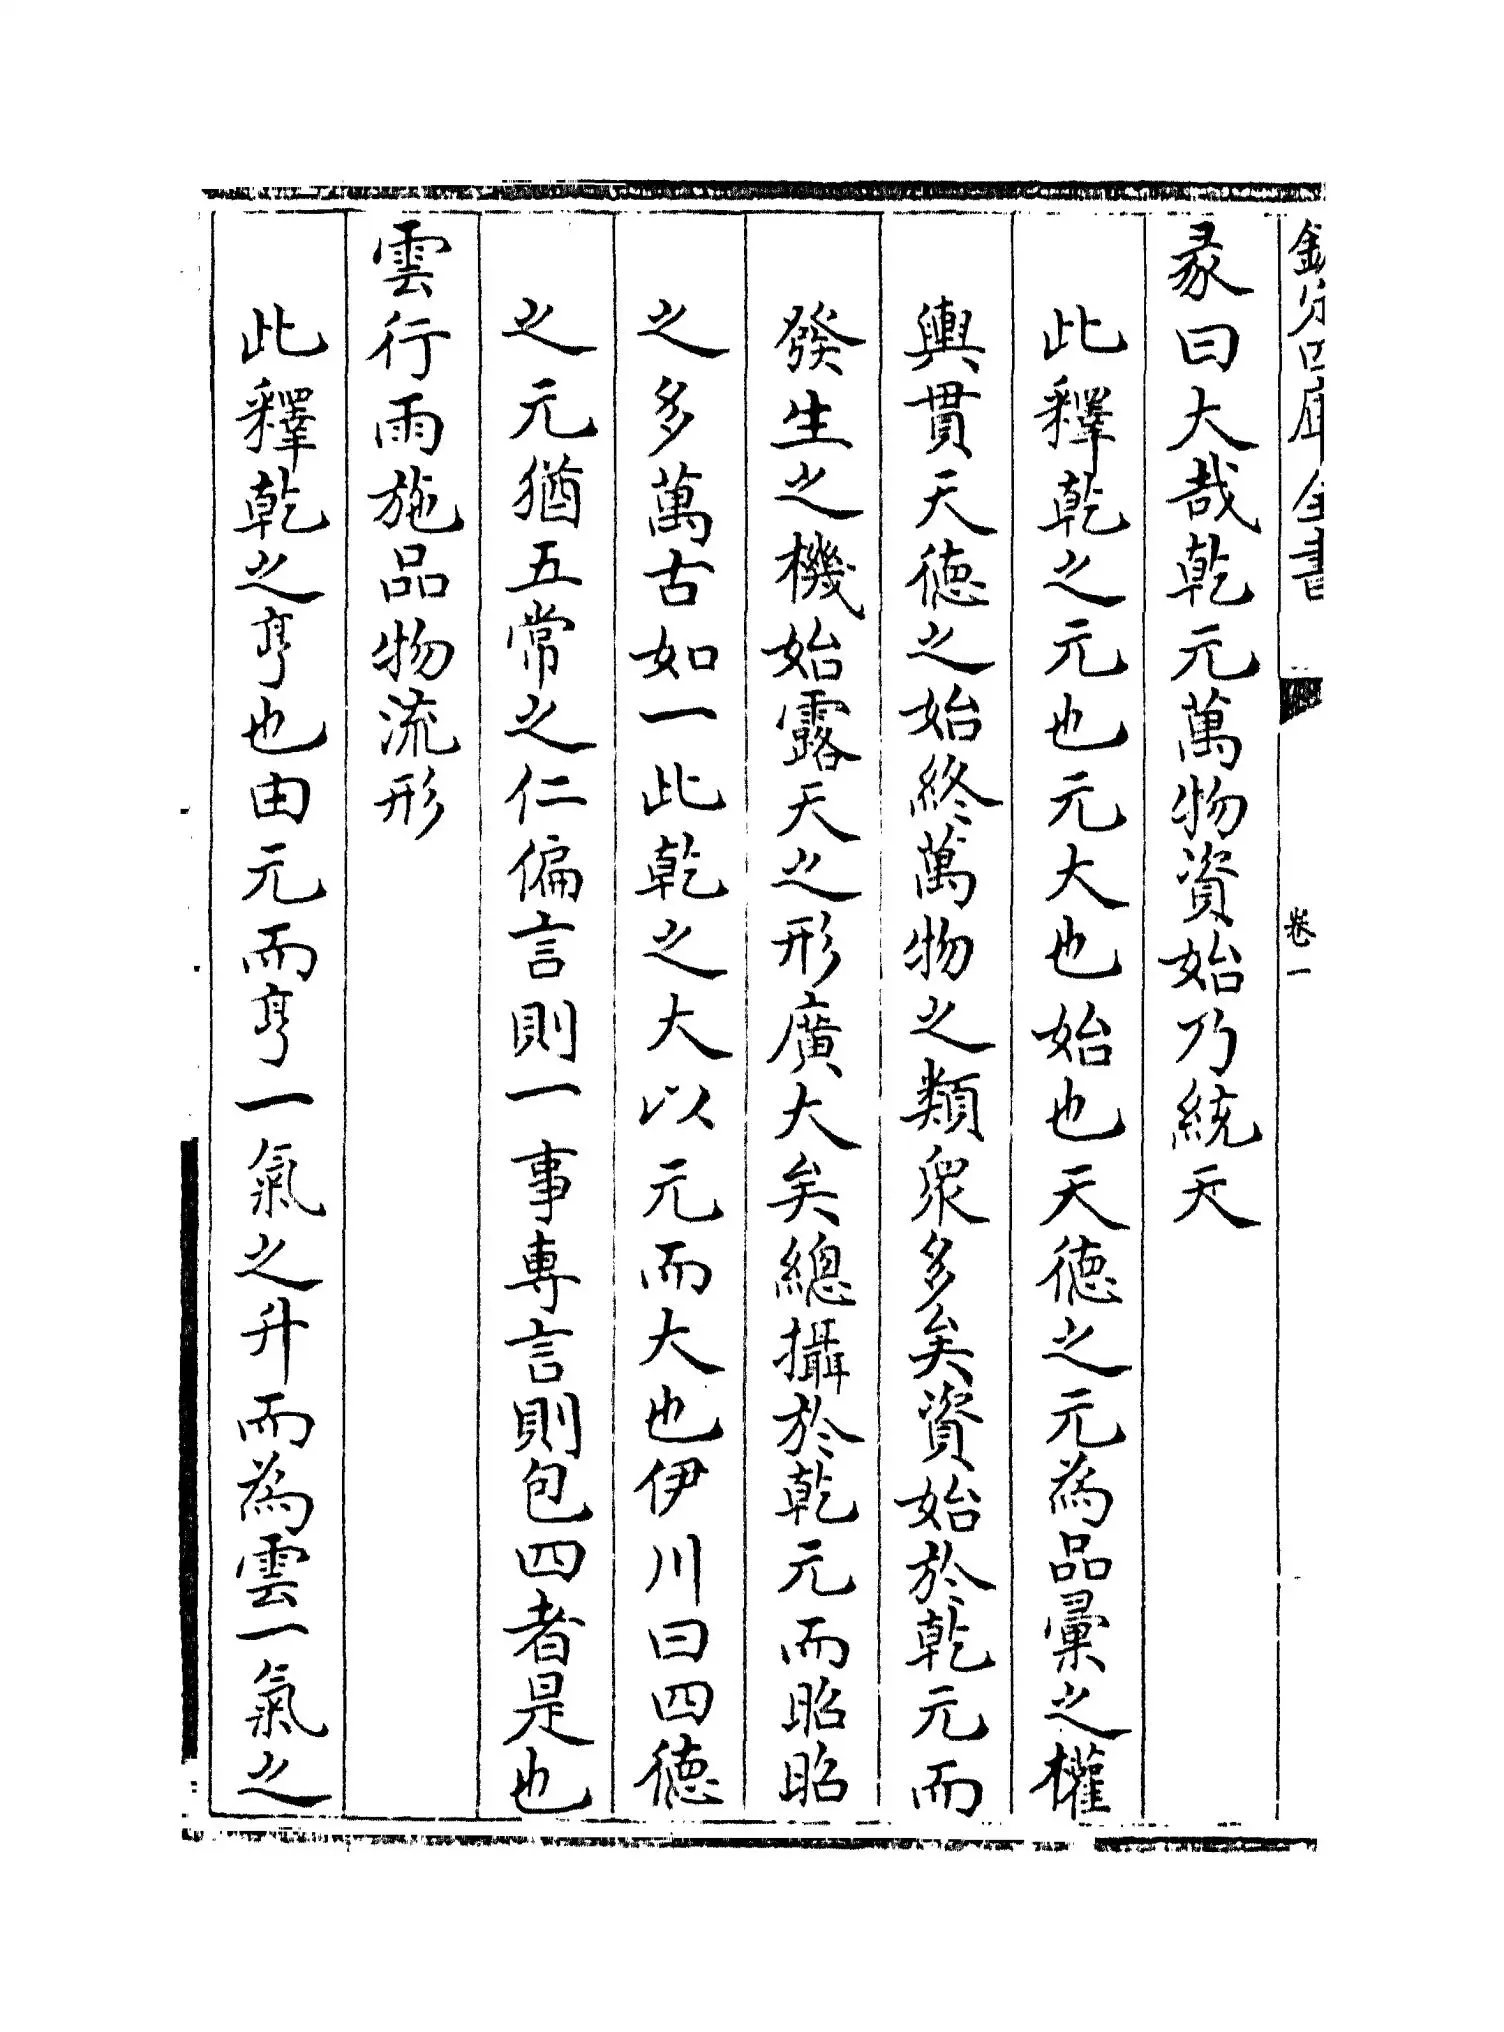 欽定四庫全書
卷一
彖曰大哉乾元萬物資始乃統天
此釋乾之元也元大也始也天德之元為品彙之權
輿貫天德之始終萬物之類衆多矣資始於乾元而
發生之機始露天之形廣大矣總攝於乾元而昭昭
之多萬古如一此乾之大以元而大也伊川曰四德
之元猶五常之仁偏言則一事專言則包四者是也
雲行雨施品物流形
此釋乾之亨也由元而亨一氣之升而為雲一氣之